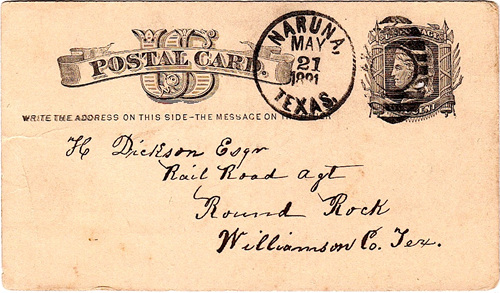 US
POSTAL CARD.
NARUNA,
MAY
21
1881
TEXAS.
WRITE THE ADDRESS ON THIS SIDE-THE MESSAGE ON THE OTHER
H Dickson Esqr
Rail Road Agt
Round Rock
Williamson Co. Tex.